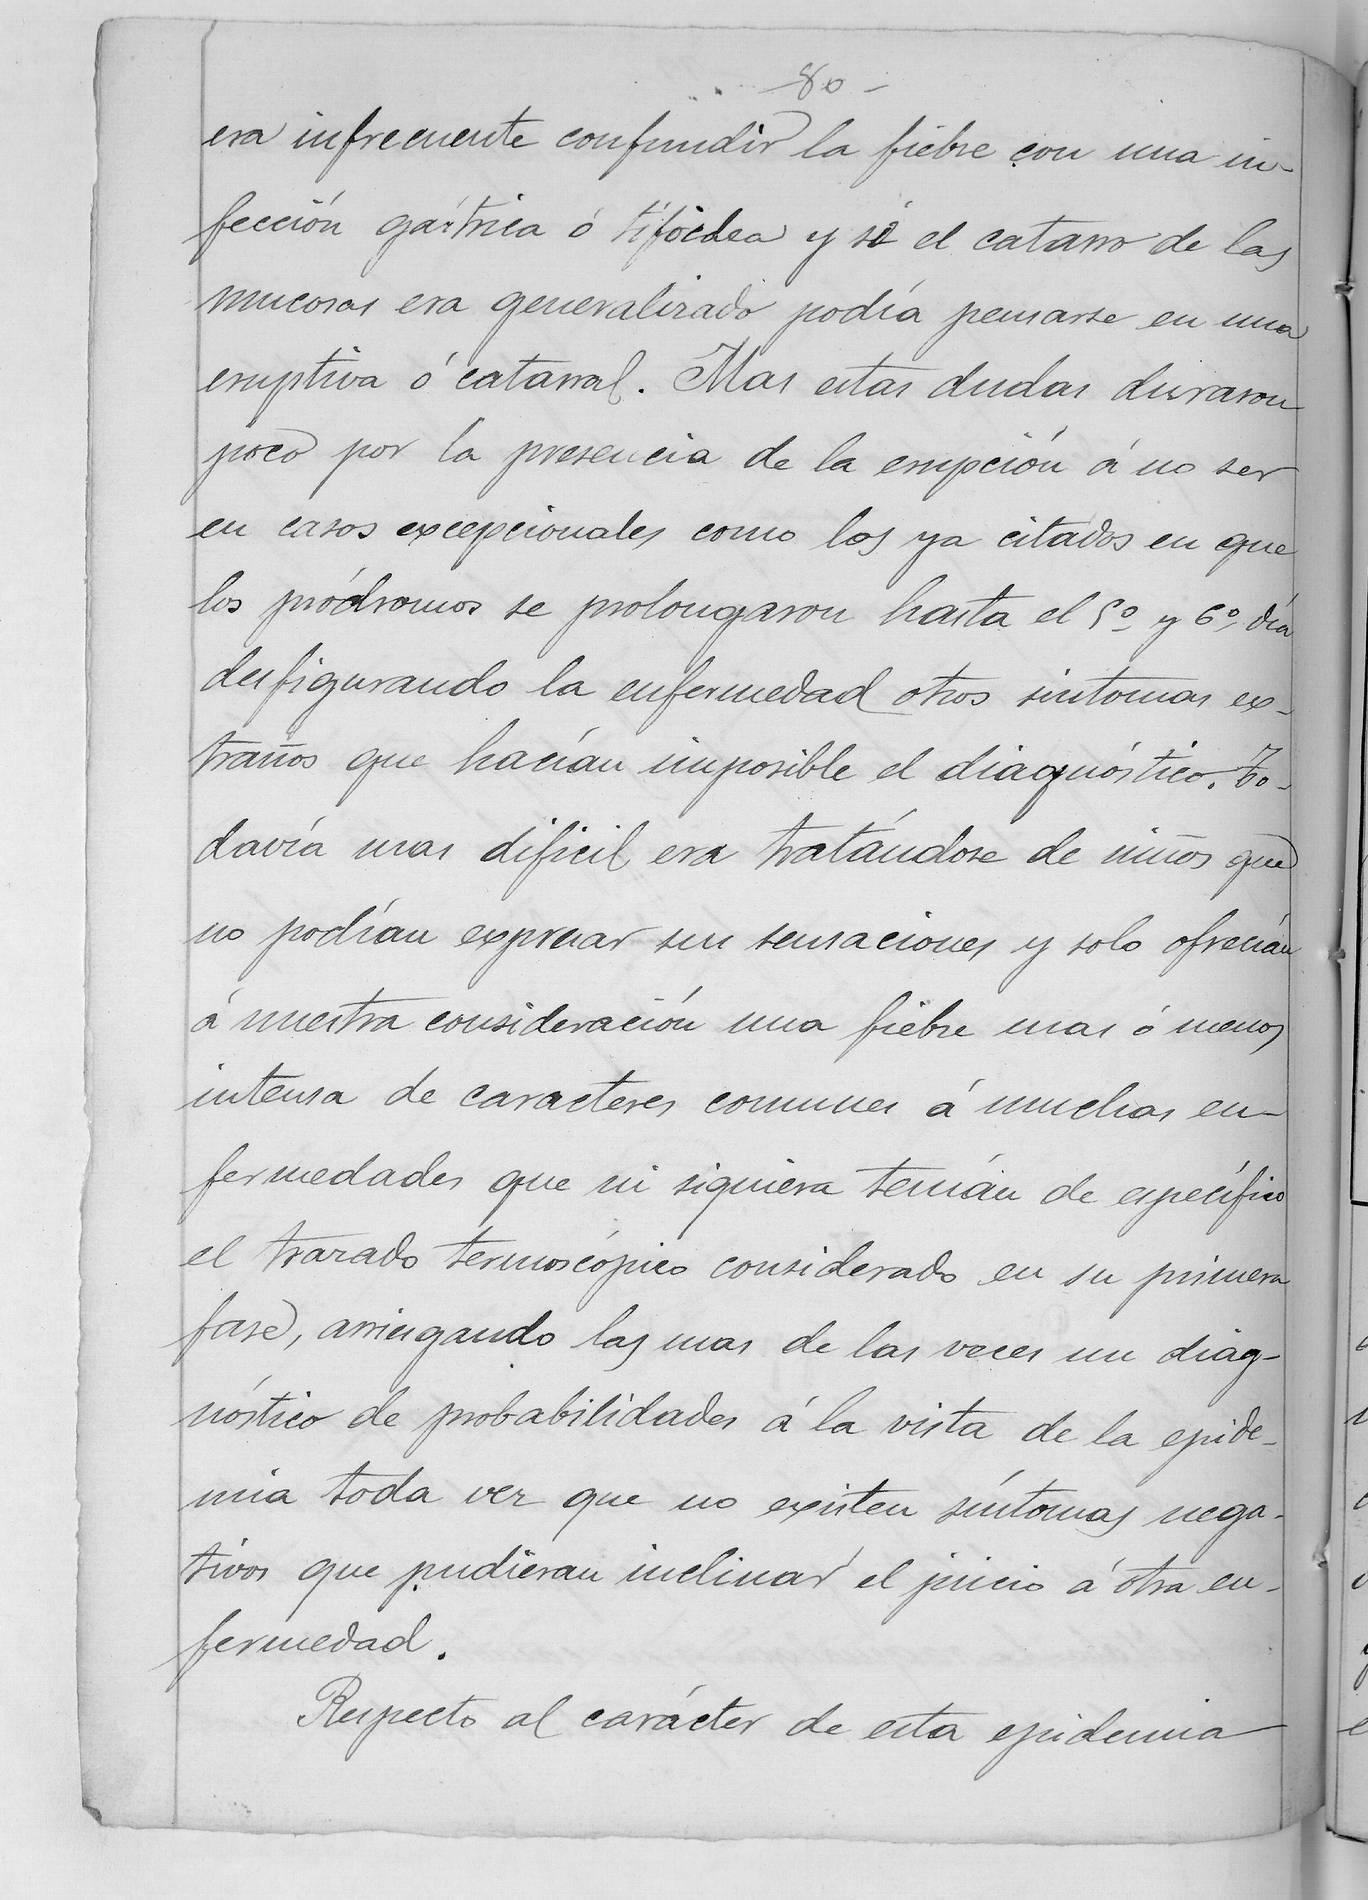 - 80 -
era infrecuente confundir la fiebre con una in-
fección gástrica ó tifóidea y si el catarro de las
mucosas era generalizado podía pensarse en una
eruptiva ó catarral. Mas estas dudas duraron
poco por la presencia de la erupción á no ser
en casos excepcionales como los ya citados en que
los pródromos se prolongaron hasta el 5º y 6º día
desfigurando la enfermedad otros sintomas ex-
traños que hacían imposible el diagnóstico. To-
davía mas dificil era tratándose de niños que
no podían expresar sus sensaciones y solo ofrecían
á nuestra consideración una fiebre mas ó menos
intensa de caracteres comunes á muchas en-
fermedades que ni siquiera tenían de específico
el trazado termoscópico considerado en su primera
fase, arriesgando las mas de las veces un diag-
nóstico de probabilidades á la vista de la epide-
mia toda vez que no existen síntomas nega-
tivos que pudieran inclinar el juicio á otra en-
fermedad.
Respecto al carácter de esta epidemia